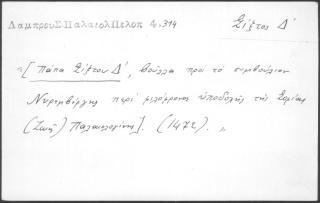 Λαμπρου Σ. Παλαιολ Πελοπ 4, 314
Σίξτος Δ΄
"[Πάπα Σίξτου Δ΄, βούλλα προς το συμβούλιον
Νυρεμβέργης περί μελλούσης υποδοχής της Σοφίας
(Ζωής) Παλαιολογίνης]. (1472). "